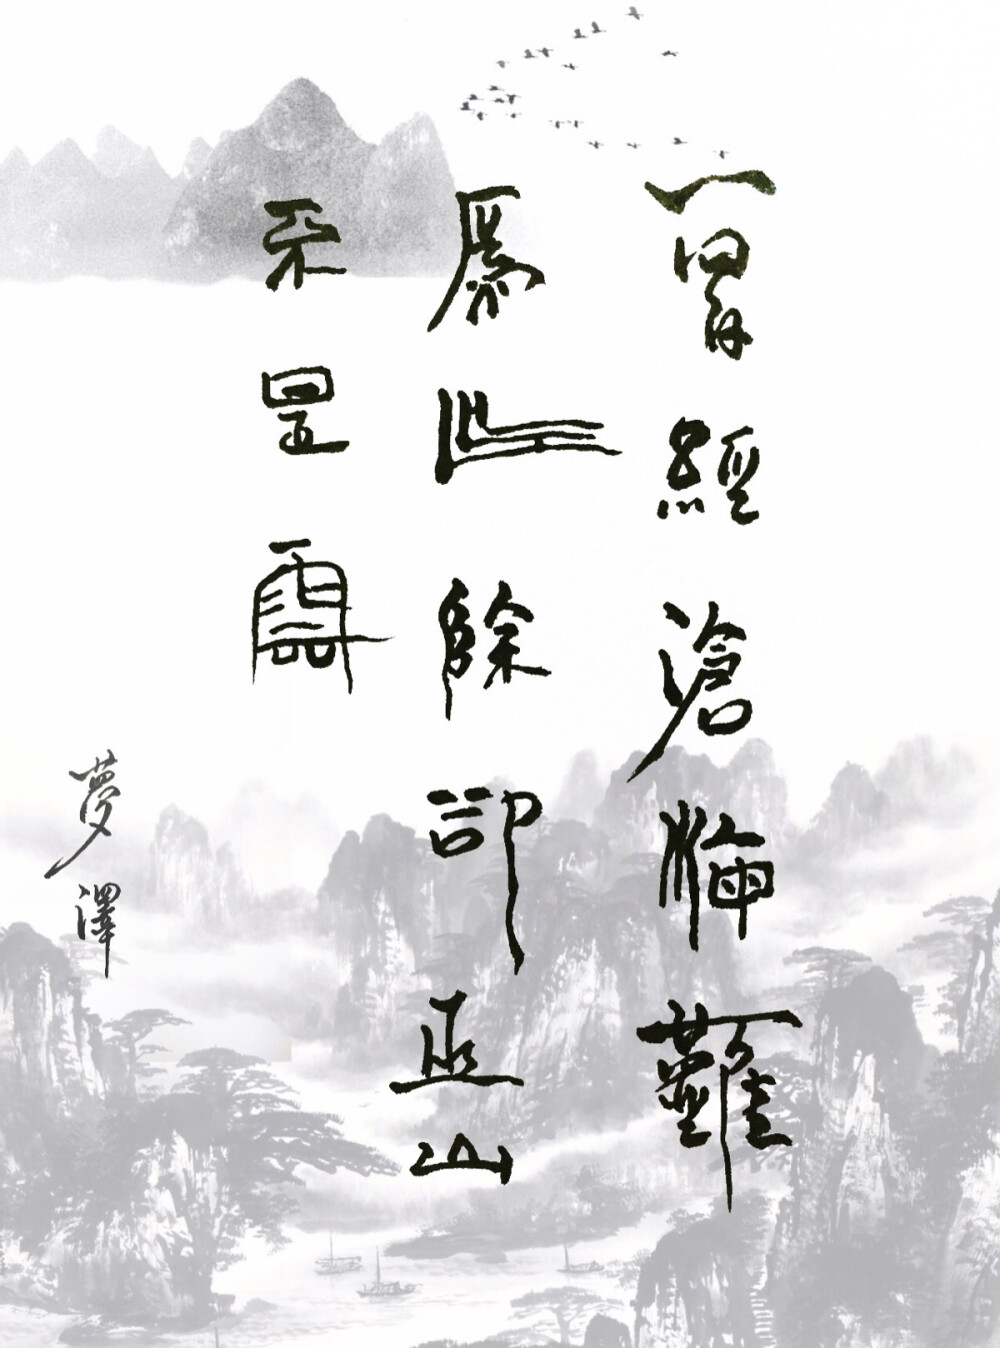 曾經滄海難
爲水除卻巫山
不是雲
夢澤